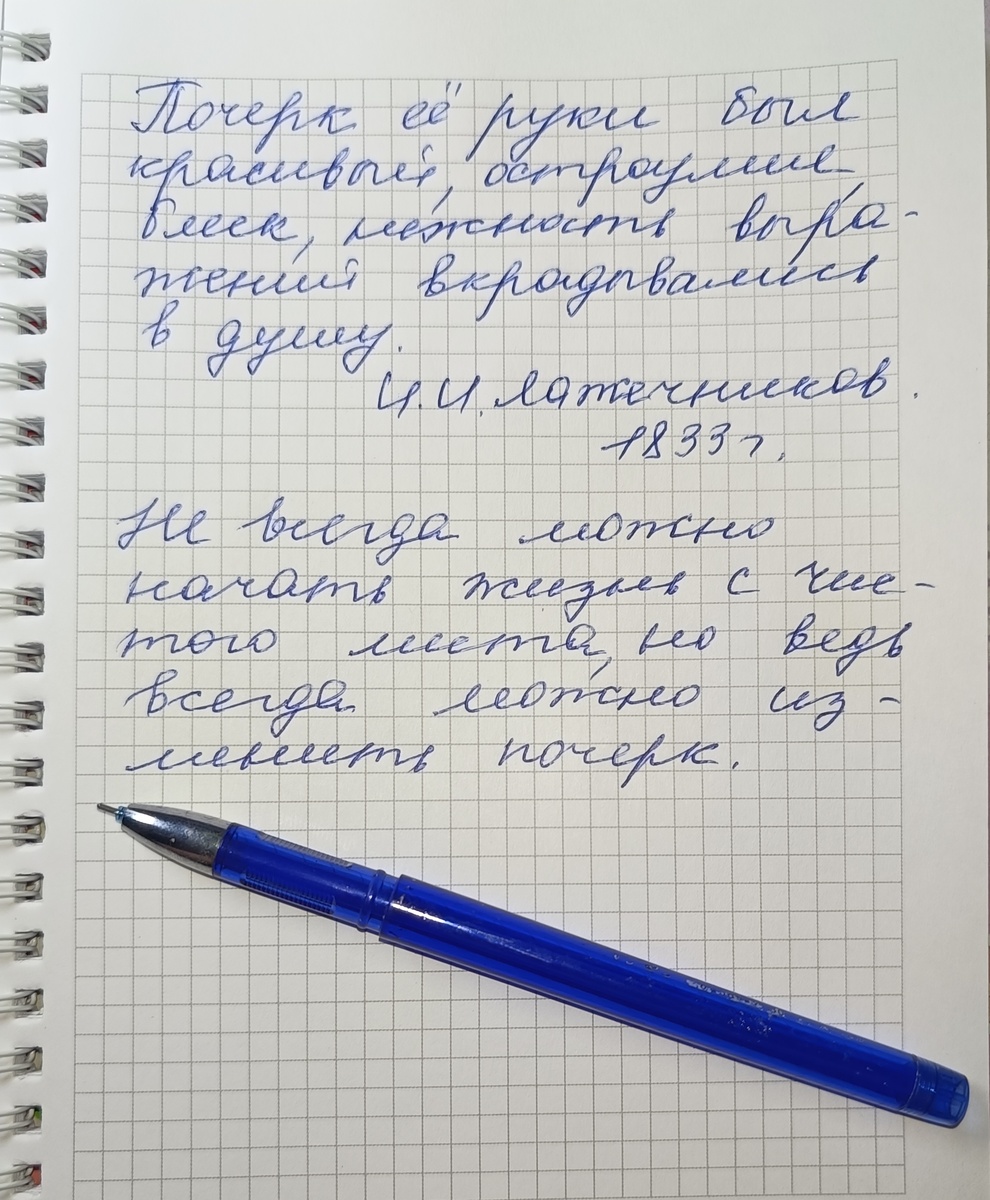 Почерк её руки был
красивый, остроумие,
блеск, нежность выра-
жений вкрадывались
в душу.
И.И. Лажечников.
1833 г.
Не всегда можно
начать жизнь с чис-
того листа, но ведь
всегда можно из-
менить почерк.